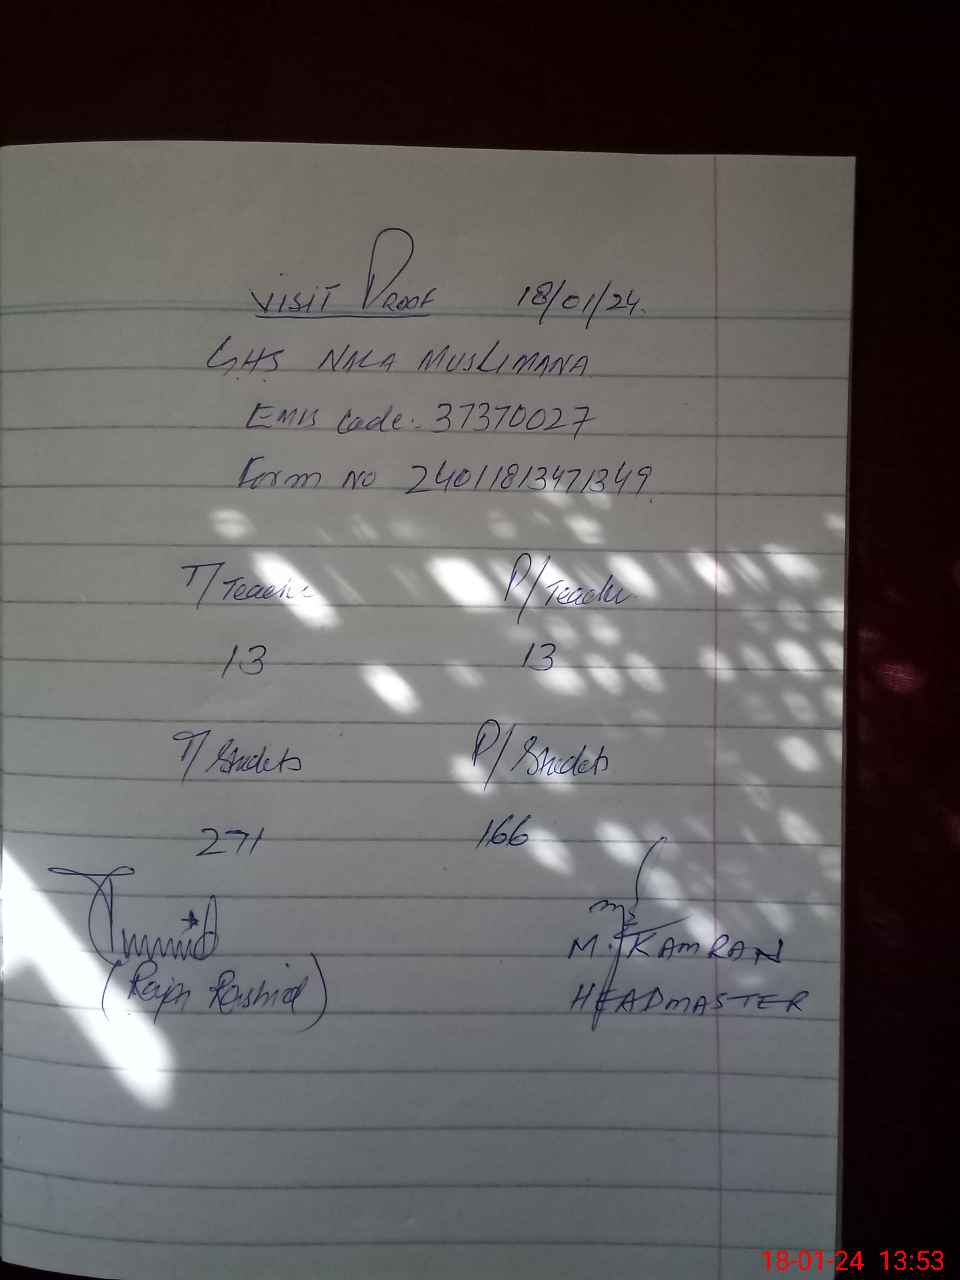 VISIT PROOF 18/01/24.
GHS NALA MUSLIMANA
EMIS Code:- 37370027
Form No 24011813471349.
T/Teacher P/Teacher
13 13
T/Students P/Students
271 166
M. KAMRAN
(Raja Rashid)
HEADMASTER
18-01-24 13:53